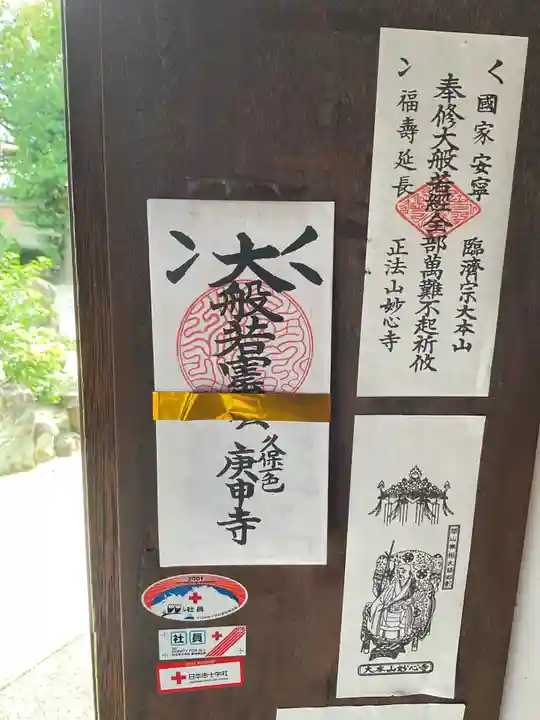 國家安寧
奉修大般若經全部萬難不起祈攸
福壽延長
臨濟宗大本山
正法山妙心寺
大般若
久保
庚申寺
大本山妙心寺
2001
社員
社員
日本赤十字社